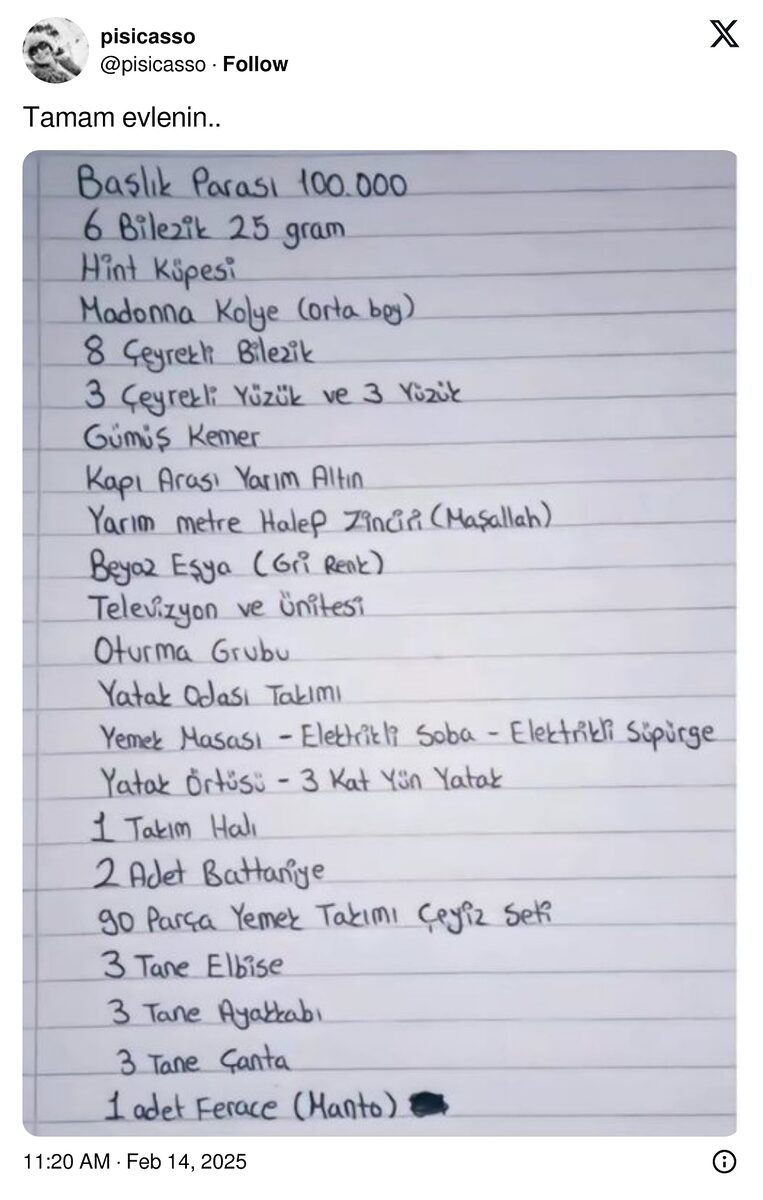 pisicasso
@pisicasso · Follow
Tamam evlenin..
Başlık Parası 100.000
6 Bilezik 25 gram
Hint Küpesi
Madonna Kolye (orta boy)
8 Çeyrekli Bilezik
3 Çeyrekli Yüzük ve 3 Yüzük
Gümüş Kemer
Kapı Arası Yarım Altın
Yarım metre Halep Zinciri (Maşallah)
Beyaz Eşya (Gri Renk)
Televizyon ve Ünitesi
Oturma Grubu
Yatak Odası Takımı
Yemek Masası - Elektrikli Soba - Elektrikli Süpürge
Yatak Örtüsü - 3 Kat Yün Yatak
1 Takım Halı
2 Adet Battaniye
90 Parça Yemek Takımı Çeyiz Seti
3 Tane Elbise
3 Tane Ayakkabı
3 Tane Çanta
1 adet Ferace (Manto)
11:20 AM · Feb 14, 2025